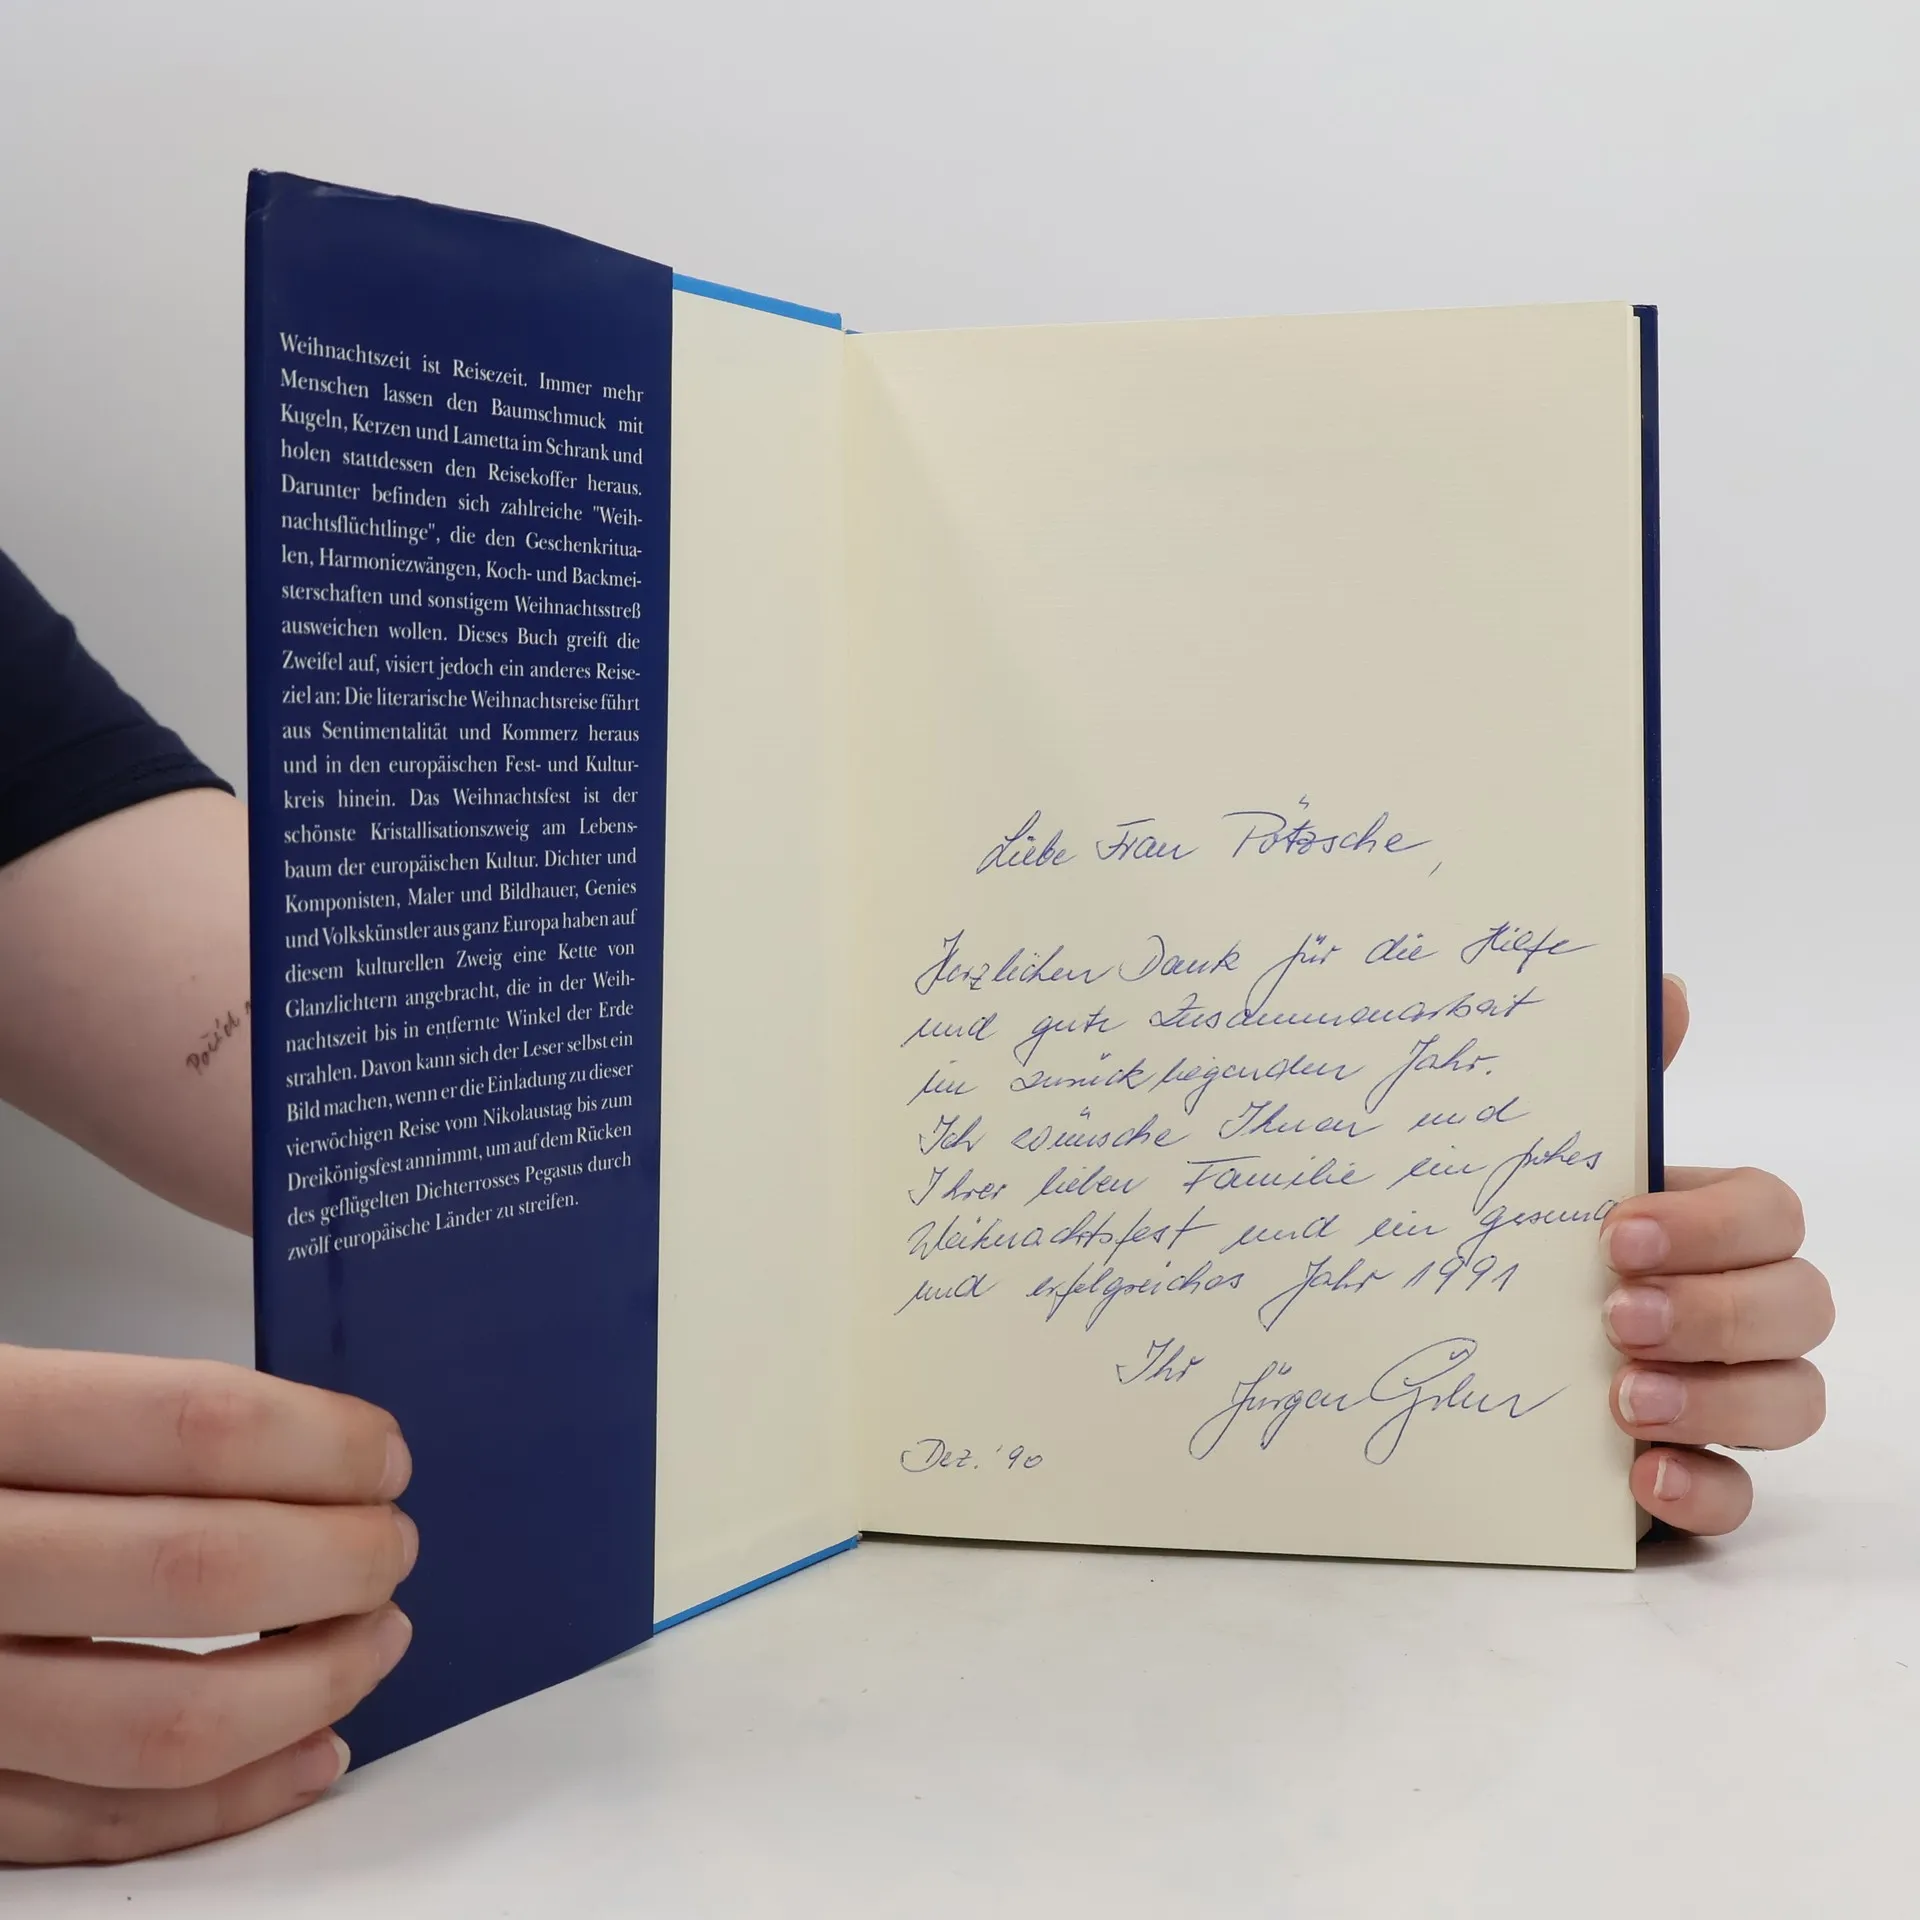 Weihnachtszeit ist Reisezeit. Immer mehr
Menschen lassen den Baumschmuck mit
Kugeln, Kerzen und Lametta im Schrank und
holen stattdessen den Reisekoffer heraus.
Darunter befinden sich zahlreiche "Weih-
nachtsflüchtlinge", die den Geschenkritua-
len, Harmoniezwängen, Koch- und Backmei-
sterschaften und sonstigem Weihnachtsstreß
ausweichen wollen. Dieses Buch greift die
Zweifel auf, visiert jedoch ein anderes Reise-
ziel an: Die literarische Weihnachtsreise führt
aus Sentimentalität und Kommerz heraus
und in den europäischen Fest- und Kultur-
kreis hinein. Das Weihnachtsfest ist der
schönste Kristallisationszweig am Lebens-
baum der europäischen Kultur. Dichter und
Komponisten, Maler und Bildhauer, Genies
und Volkskünstler aus ganz Europa haben auf
diesem kulturellen Zweig eine Kette von
Glanzlichtern angebracht, die in der Weih-
nachtszeit bis in entfernte Winkel der Erde
strahlen. Davon kann sich der Leser selbst ein
Bild machen, wenn er die Einladung zu dieser
vierwöchigen Reise vom Nikolaustag bis zum
Dreikönigsfest annimmt, um auf dem Rücken
des geflügelten Dichterrosses Pegasus durch
zwölf europäische Länder zu streifen.
Liebe Frau Pötzsche,
Herzlichen Dank für die Hilfe
und gute Zusammenarbeit
im zurückliegenden Jahr.
Ich wünsche Ihnen und
Ihrer lieben Familie ein frohes
Weihnachtsfest und ein gesund
und erfolgreiches Jahr 1991
Ihr Jürgen
Dez. '90